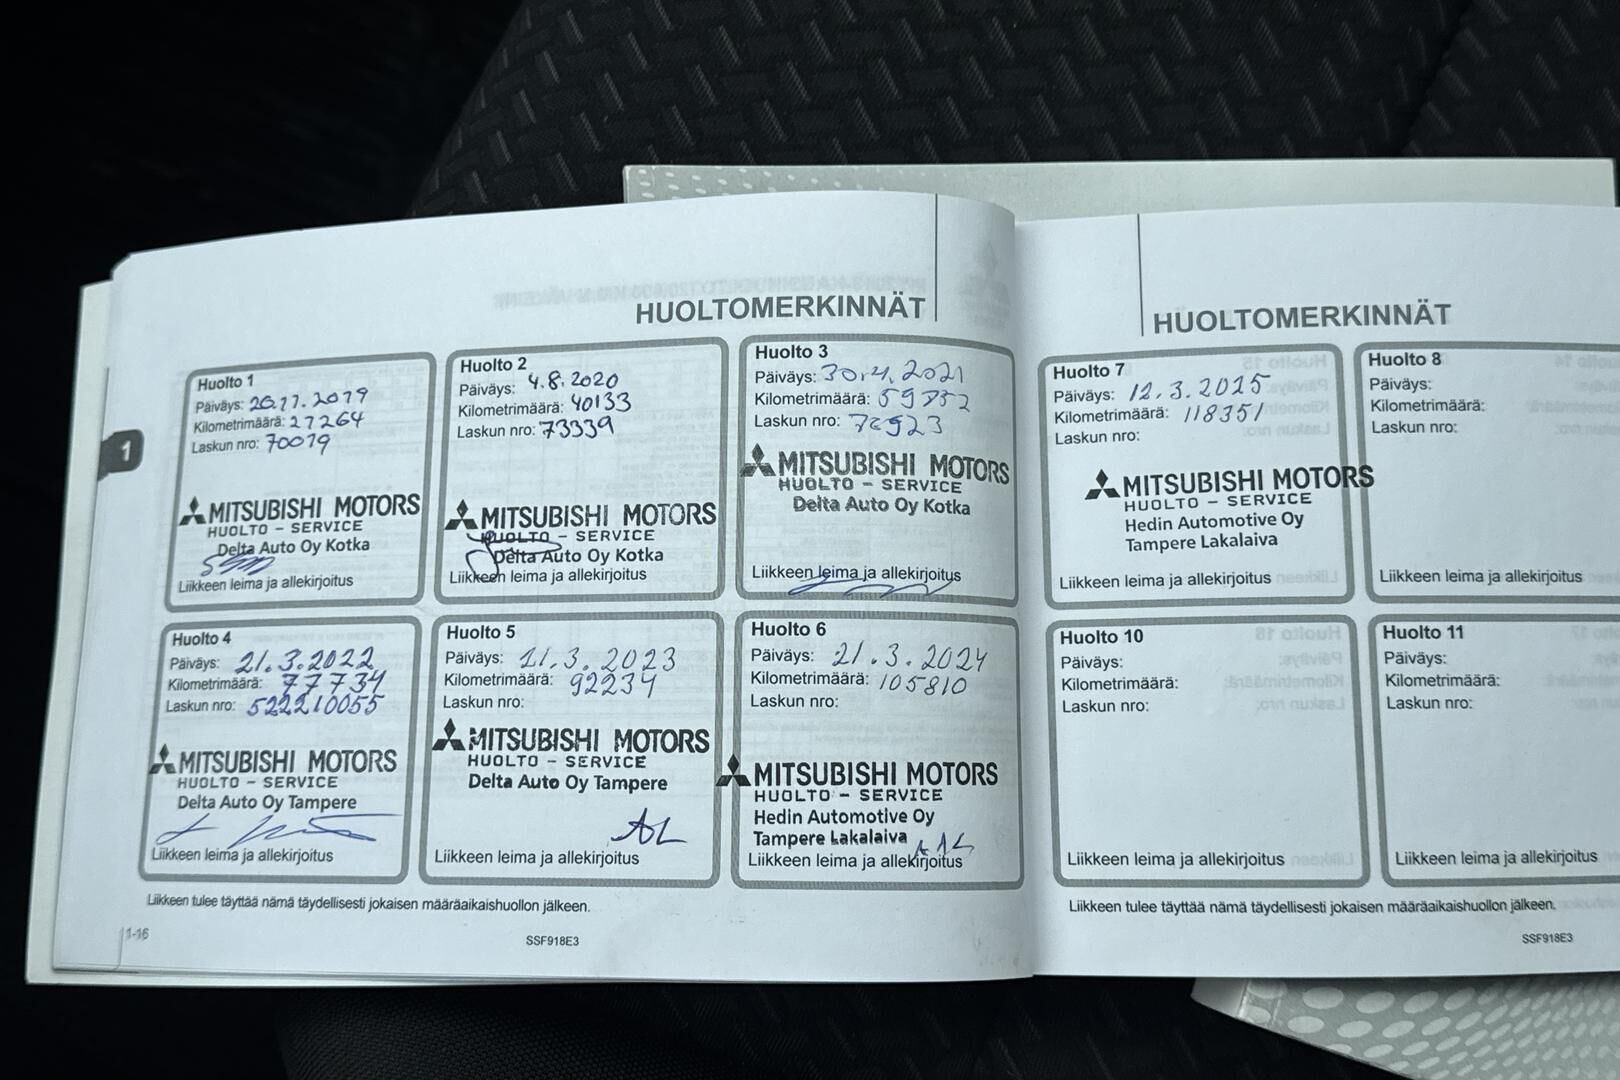 HUOLTOMERKINNÄT
Huolto 1
Päiväys: 20.11.2019
Kilometrimäärä: 27264
Laskun nro: 70019
MITSUBISHI MOTORS
HUOLTO - SERVICE
Delta Auto Oy Kotka
Liikkeen leima ja allekirjoitus
Huolto 2
Päiväys: 4.8.2020
Kilometrimäärä: 40133
Laskun nro: 73339
MITSUBISHI MOTORS
HUOLTO - SERVICE
Delta Auto Oy Kotka
Liikkeen leima ja allekirjoitus
Huolto 3
Päiväys: 30.4.2021
Kilometrimäärä:
Laskun nro:
MITSUBISHI MOTORS
HUOLTO - SERVICE
Delta Auto Oy Kotka
Liikkeen leima ja allekirjoitus
Huolto 4
Päiväys: 21.3.2022
Kilometrimäärä: 77734
Laskun nro: 522210055
MITSUBISHI MOTORS
HUOLTO - SERVICE
Delta Auto Oy Tampere
Liikkeen leima ja allekirjoitus
Huolto 5
Päiväys: 21.3.2023
Kilometrimäärä: 92234
Laskun nro:
MITSUBISHI MOTORS
HUOLTO - SERVICE
Delta Auto Oy Tampere
AL
Liikkeen leima ja allekirjoitus
Huolto 6
Päiväys: 21.3.2024
Kilometrimäärä: 105810
Laskun nro:
MITSUBISHI MOTORS
HUOLTO - SERVICE
Hedin Automotive Oy
Tampere Lakalaiva
Liikkeen leima ja allekirjoitus
Liikkeen tulee täyttää nämä täydellisesti jokaisen määräaikaishuollon jälkeen.
1-16
SSF918E3
1
HUOLTOMERKINNÄT
Huolto 7
Päiväys: 12.3.2025
Kilometrimäärä: 118351
Laskun nro:
MITSUBISHI MOTORS
HUOLTO - SERVICE
Hedin Automotive Oy
Tampere Lakalaiva
Liikkeen leima ja allekirjoitus
Huolto 8
Päiväys:
Kilometrimäärä:
Laskun nro:
Liikkeen leima ja allekirjoitus
Huolto 10
Päiväys:
Kilometrimäärä:
Laskun nro:
Liikkeen leima ja allekirjoitus
Huolto 11
Päiväys:
Kilometrimäärä:
Laskun nro:
Liikkeen leima ja allekirjoitus
Liikkeen tulee täyttää nämä täydellisesti jokaisen määräaikaishuollon jälkeen.
SSF918E3